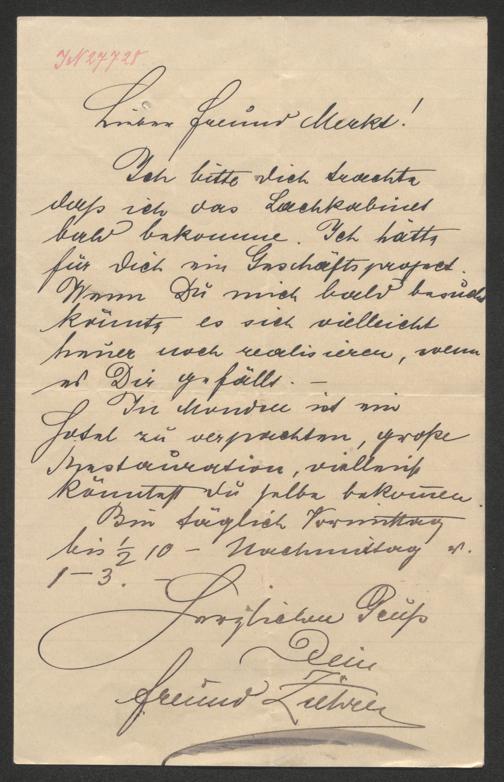 JN 27728
Lieber Freund Merkt!
Ich bitte Dich trachte
daß ich das Lachkabinet
bald bekomme. Ich hätte
für Dich ein Geschäftsproject.
Wenn Du mich bald besuchst
könnte es sich vielleicht
heuer noch realisieren, wenn
es Dir gefällt. –
In Mondsee ist ein
Hotel zu verpachten, große
Restauration, vielleicht
könntest Du selbe bekom̅en.
Bin täglich Vormittag
bis ½ 10 – Nachmittag v.
1–3. –
Herzlichen Gruß
Dein
Freund Ziehrer